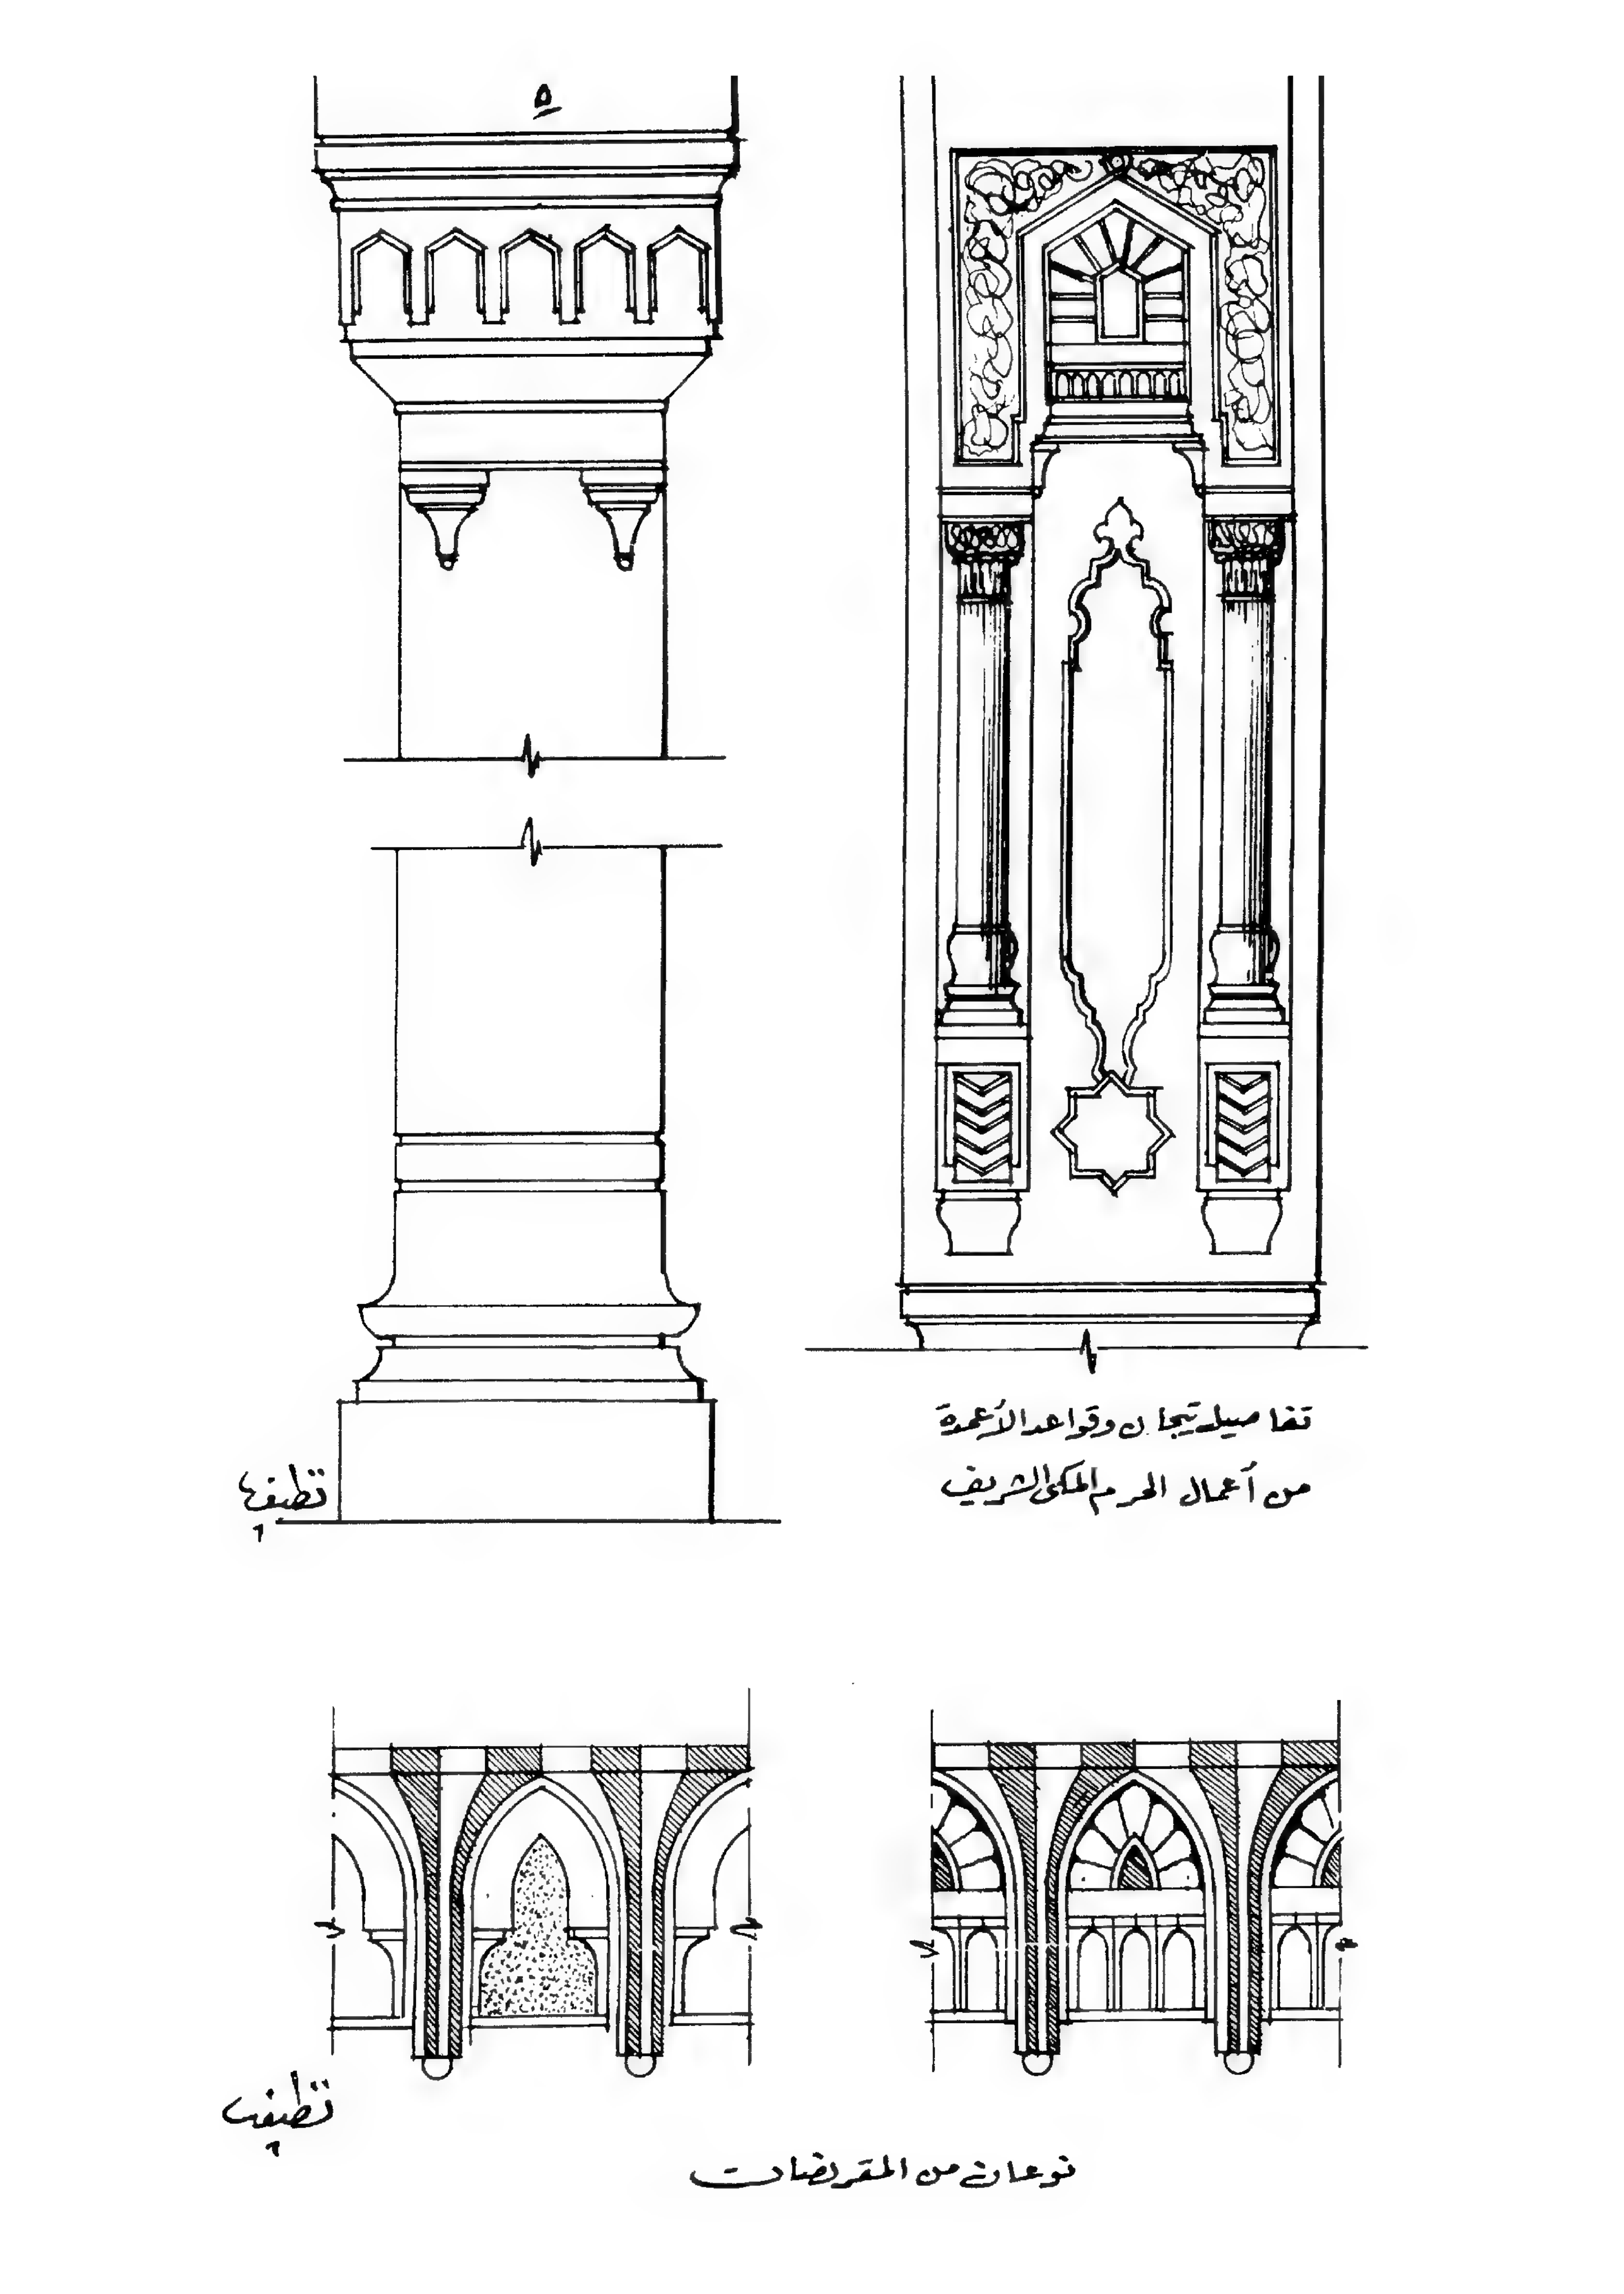 ٥
تفاصيل تيجان وقواعد الأعمدة
من أعمال الحرم المكى الشريف
نوعان من المقرنصات